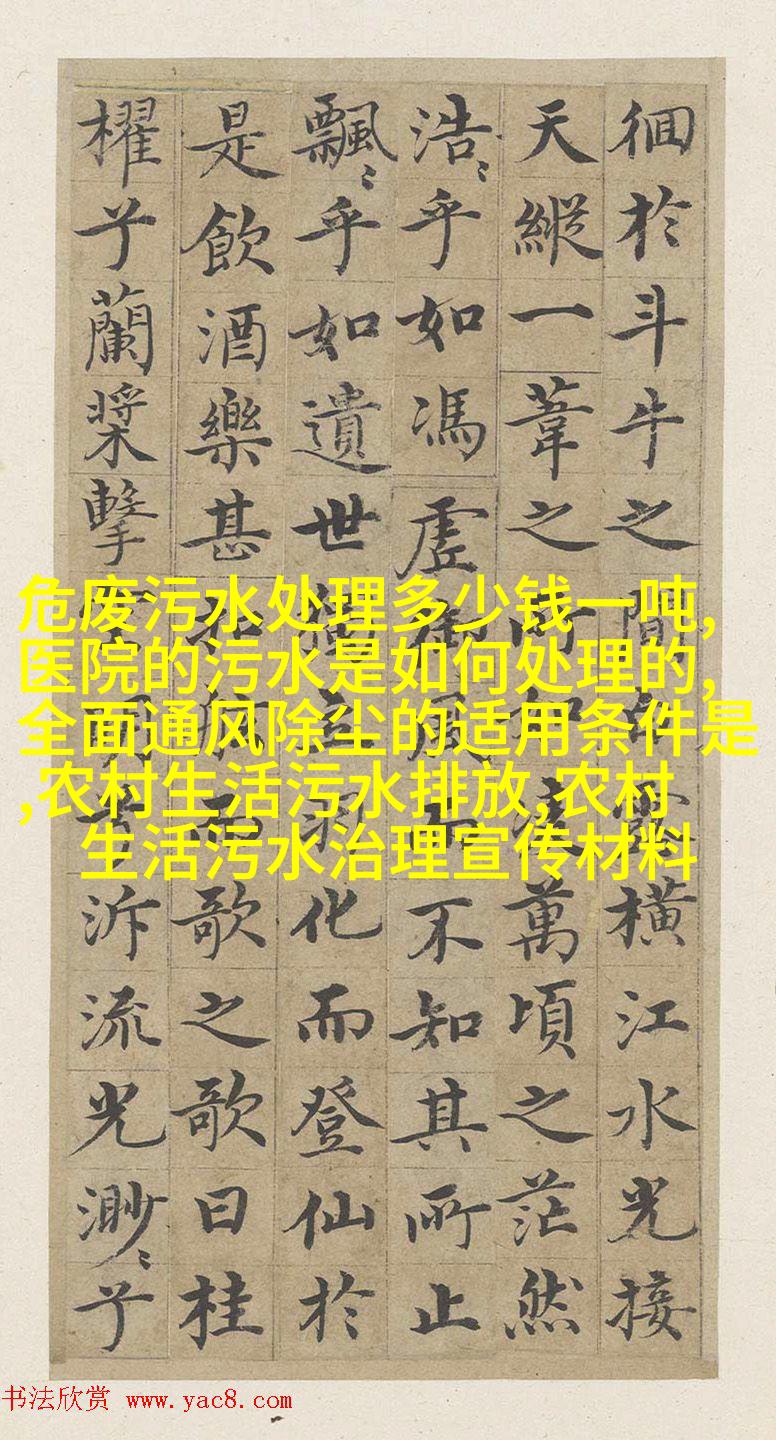 徊於斗牛之間白露橫江水光接
天縱一葦之所如凌萬頃之茫然
浩〻乎如馮虛御風而不知其所止
飄〻乎如遺世獨立羽化而登仙於
是飲酒樂甚扣舷而歌之歌曰桂
櫂兮蘭槳擊空明兮泝流光渺〻兮
危废污水处理多少钱一吨,
医院的污水是如何处理的,
全面通风除尘的适用条件是
,农村生活污水排放,农村
生活污水治理宣传材料
书法欣赏 www.yac8.com